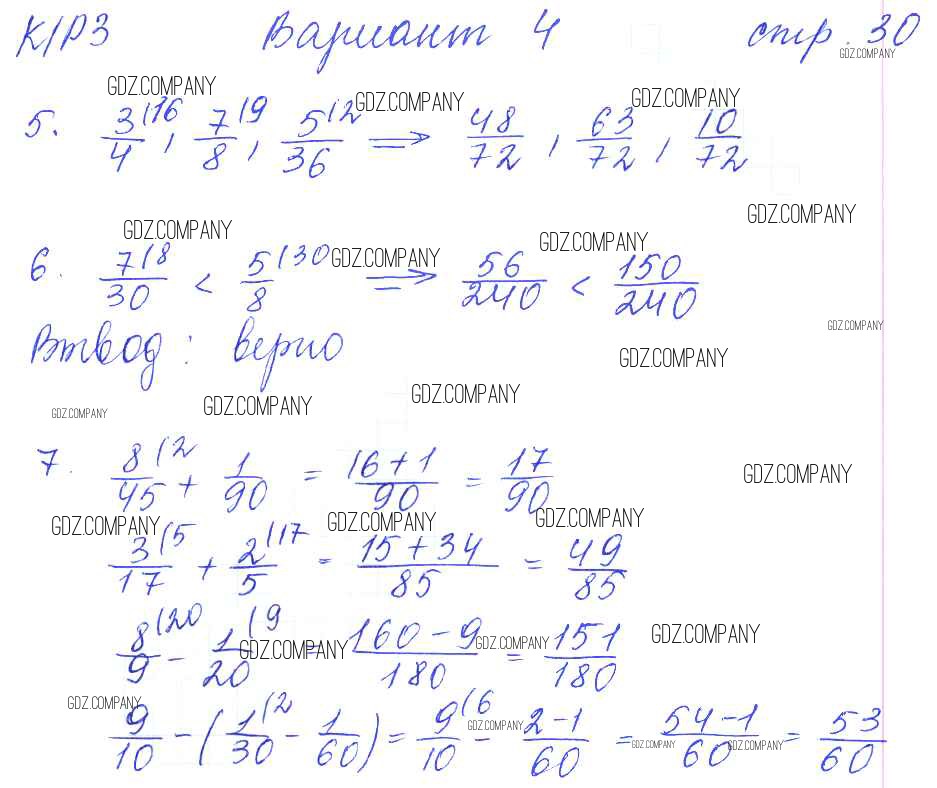 К/Р3 Вариант 4 стр. 30
GDZ.COMPANY
GDZ.COMPANY GDZ.COMPANY GDZ.COMPANY
5. 3/4 (16, 7/8 (9, 5/36 (2 => 48/72, 63/72, 10/72
GDZ.COMPANY
GDZ.COMPANY GDZ.COMPANY GDZ.COMPANY
6. 7/30 (8 < 5/8 (30 => 56/240 < 150/240
GDZ.COMPANY
Вывод: верно
GDZ.COMPANY
GDZ.COMPANY GDZ.COMPANY GDZ.COMPANY
7. 8/45 (2 + 1/90 = 16+1/90 = 17/90
GDZ.COMPANY
GDZ.COMPANY GDZ.COMPANY GDZ.COMPANY
3/17 (5 + 2/5 (17 = 15+34/85 = 49/85
8/9 (20 - 1/20 (9 = 160-9/180 = 151/180
GDZ.COMPANY GDZ.COMPANY GDZ.COMPANY
GDZ.COMPANY GDZ.COMPANY
9/10 - (1/30 (2 - 1/60) = 9/10 (6 - 2-1/60 = 54-1/60 = 53/60
GDZ.COMPANY GDZ.COMPANY